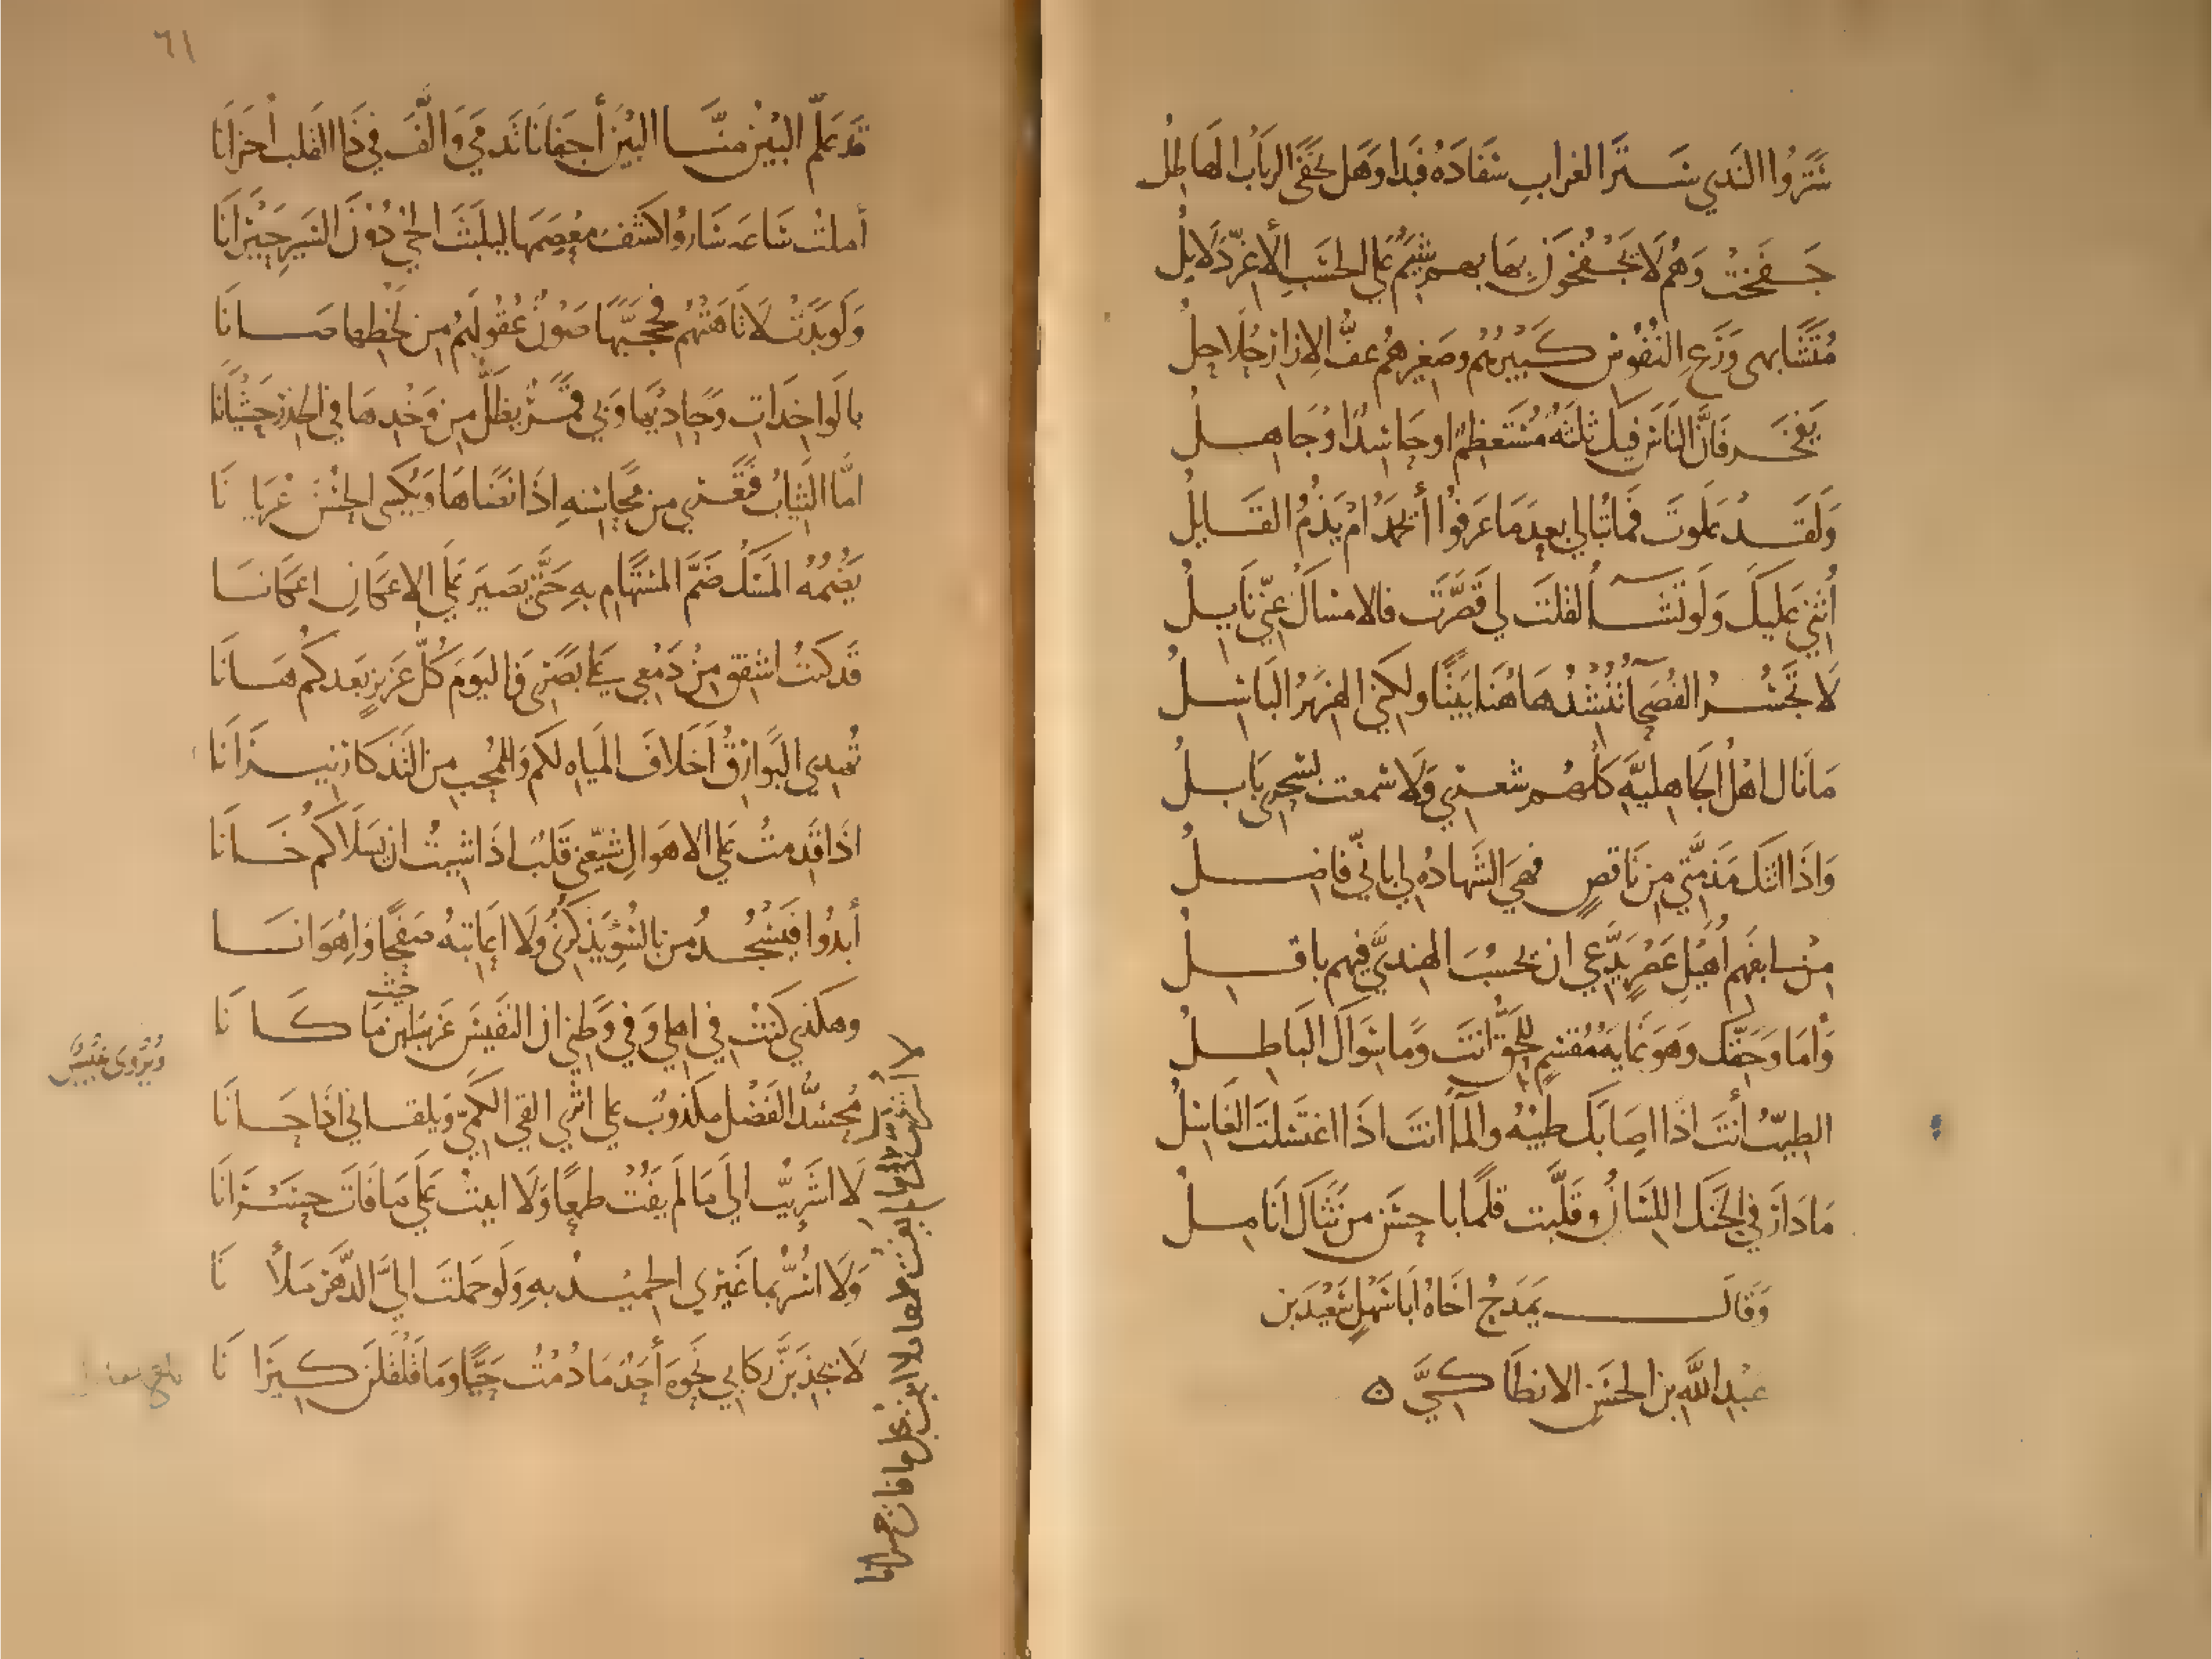 سَتَرُوا النَدي سَتَرَ الغرابِ سَفَادَهُ فَبَدا وَهَل يَخفَى الرَبَابُ الهَاطِلُ
جَفَخَتْ وَهُم لَا يَجْفَخُونَ بِهَا بِهم شِيَمٌ عَلي الحَسَبِ الأَغَرِّ دَلَايِلُ
مُتَشَابهى وَرَعِ النُفُوسِ كَبِيرُهُم وصَغِيرهُم عفُّ الاِزارِ حُلَاحِلُ
يَفْخَر فَانَّ النَاسَ فيكَ ثلثَه مُسْتَعظِمٌ اوحَاسِدٌ اوجَاهِلُ
وَلَقَد عَلَوتَ فَمَا تُبَالي بَعدَ مَا عَرَفُوا أَيَحمَدُ امْ يَذُمُّ القَايِلُ
أُثني عَلَيكَ وَلَو تَشَآءُ لقلتَ لي قَصَّرتَ فالامسَاكُ عنّي نَايِلُ
لَا تَجْسُرُ الفُصَحَآءُ تُنشِدُ هَاهُنَا بَيتًا ولكنّي الهِزَبْرُ البَاسِلُ
مَا نَال اهْلُ الجَاهِليَّهِ كلُّهُم شعري وَلَا سَمعت بسِحرِى بَابِلُ
وَاذَا اتتكَ مَذمَّتي مِن نَاقصٍ فهيَ الشَهَادهُ لي باني فَاضِلُ
مِن لي بفَهمِ اُهَيْلِ عَصْرٍ يَدَّعي ان يحسُبَ الهنديَّ فيهم باقِلُ
وَأَما وَحَقّكَ وَهوَ غَايهُ مُقسِمٍ لِلحَقُّ انتَ وَما سِوَاكَ البَاطِلُ
الطِيبُ أنتَ اذَا اصَابَكَ طيبُهُ والمَآءُ انتَ اذَا اغتَسَلتَ الغَاسِلُ
مَا دَارَ في الحَنَكِ اللِسَانُ وقَلَّبت قلَمًا باحسَنَ من نَثَاكَ انَامِلُ
وَقَالَ يَمدَحُ اخَاهُ ابَا سَهْلٍ سَعِيْدَ بن
عبدِ اللَّهِ بن الحسَنِ الانطَاكيَّ ٥
٦١
قَد عَلَّم البَيْنُ منَّا البَيْنَ أجفَانَا تَدمي وَالَّفَ في ذَا القَلب أحزَانَا
أملتُ سَاعهَ سَارُوا كشفَ مِعصَمِهَا ليَلبَثَ الحَيُّ دُوْنَ السَيرِ حَيْرَانَا
وَلَو بَدَتْ لَاتَاهَتْهُم فَحَجَّبَهَا صَوْنٌ عُقُولَهُم مِن لَحْظِهَا صَانَا
بالوَاخِدَاتِ وَحَادِيهَا وَبي قَمَرٌ يظَلُّ مِن وَخْدِهَا في الخِدْرِ حَشْيَانَا
امَّا الثيَابُ فَتَعرَي من محَاسنهِ اذَا نَضَاهَا وَيُكسَى الحُسْنَ عُريَانَا
يَضُمّهُ المسْكُ ضَمَّ المُستهَامِ بهِ حَتَّى يَصيرَ عَلَي الاعكَانِ اعكَانَا
قَد كنتُ اشفِقُ مِن دَمْعي عَلي بَصَري فَاليَومَ كُلُّ عَزيزٍ بَعدَكُم هَانَا
تُهدي البَوَارقُ أَخلَافَ المَيَاهِ لكم وَللمُحبِ من التَذكارِ نيرَانَا
اذَا قَدمتُ عَلي الاهوَالِ شَيّعَني قَلبٌ اذَا شِيتُ ان يَسلَاكُم خَانَا
أبدُوا فيَسْجُدُ من بالسُوْءِ يَذكُرُني وَلَا اُعَاتبهُ صَفحًا وَاِهوَانَا
وهكَذي كنتُ في اهلي وَفي وَطَني ان النفيسَ غَريبٌ اين مَا كَانَا
حيث
وَيُروَى
مُحسَّدُ الفَضْلِ مَكذوبٌ علي اثَري القَي الكَمِيَّ ويلقَاني اذَا حَانَا
لَا اشرَئِبُّ الَي مَا لَم يَفُتْ طمعًا وَلَا ابيتُ عَلَي مَا فَاتَ حَسْرَانَا
وَلَا اُسَرُّ بمَا غَيري الحَميْدُ بهِ وَلَو حَملتَ اليَّ الدَّهْرَ مَلأَنَا
لَا يَجذبَنَّ رِكَابي نَحوَهُ أحَدٌ مَا دُمْتُ حَيًّا وَمَا قَلْقَلْنَ كيرَانَا
لا أشرئب الى ما لم يفت طمعا ولا ابيت على ما فات حسرانا